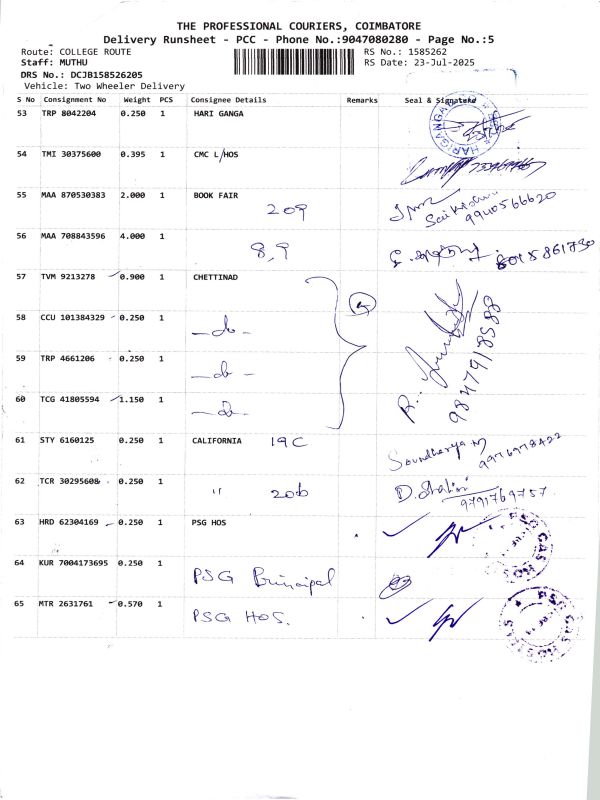 THE PROFESSIONAL COURIERS, COIMBATORE
Delivery Runsheet - PCC - Phone No.:9047080280 - Page No.:5
Route: COLLEGE ROUTE RS No.: 1585262
Staff: MUTHU RS Date: 23-Jul-2025
DRS No.: DCJB158526205
Vehicle: Two Wheeler Delivery
S No Consignment No Weight PCS Consignee Details Remarks Seal & Signature
53 TRP 8042204 0.250 1 HARI GANGA
54 TMI 30375600 0.395 1 CMC L/HOS
55 MAA 870530383 2.000 1 BOOK FAIR
209 9940566620
56 MAA 708843596 4.000 1
8,9 8015861730
57 TVM 9213278 0.900 1 CHETTINAD
4
58 CCU 101384329 0.250 1
-do-
59 TRP 4661206 0.250 1
-do-
60 TCG 41805594 1.150 1
-do- 9847918588
61 STY 6160125 0.250 1 CALIFORNIA 19C Soundharya M
9976978422
62 TCR 30295608 0.250 1 " 206 D. Shalini
9791769757
63 HRD 62304169 0.250 1 PSG HOS
64 KUR 7004173695 0.250 1
PSG Principal
65 MTR 2631761 0.570 1
PSG HOS.